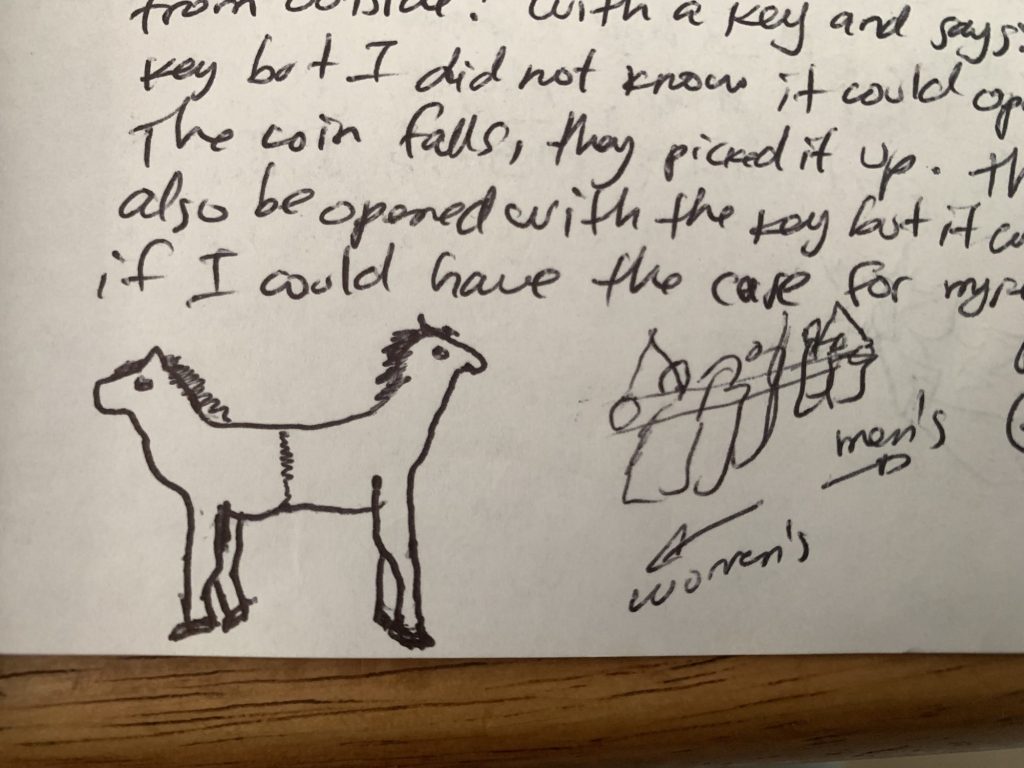 from outside. With a key and says:
key but I did not know it could op
The coin falls, they picked it up. Th
also be opened with the key but it co
if I could have the case for myse
men's
women's